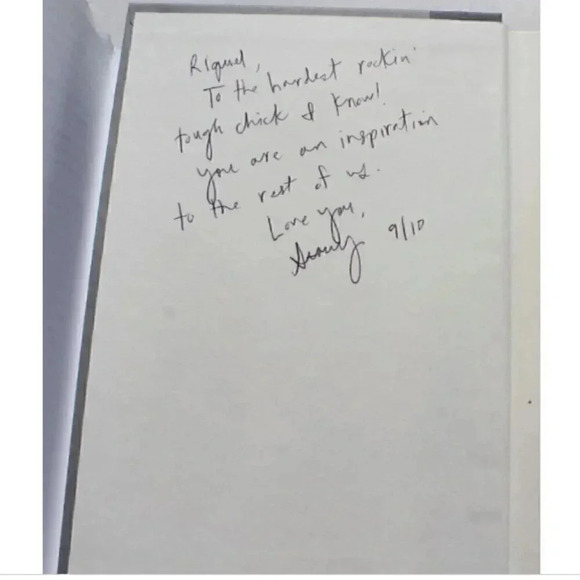 Riquel,
To the hardest rockin'
tough chick I know!
you are an inspiration
to the rest of us.
Love you,
9/10